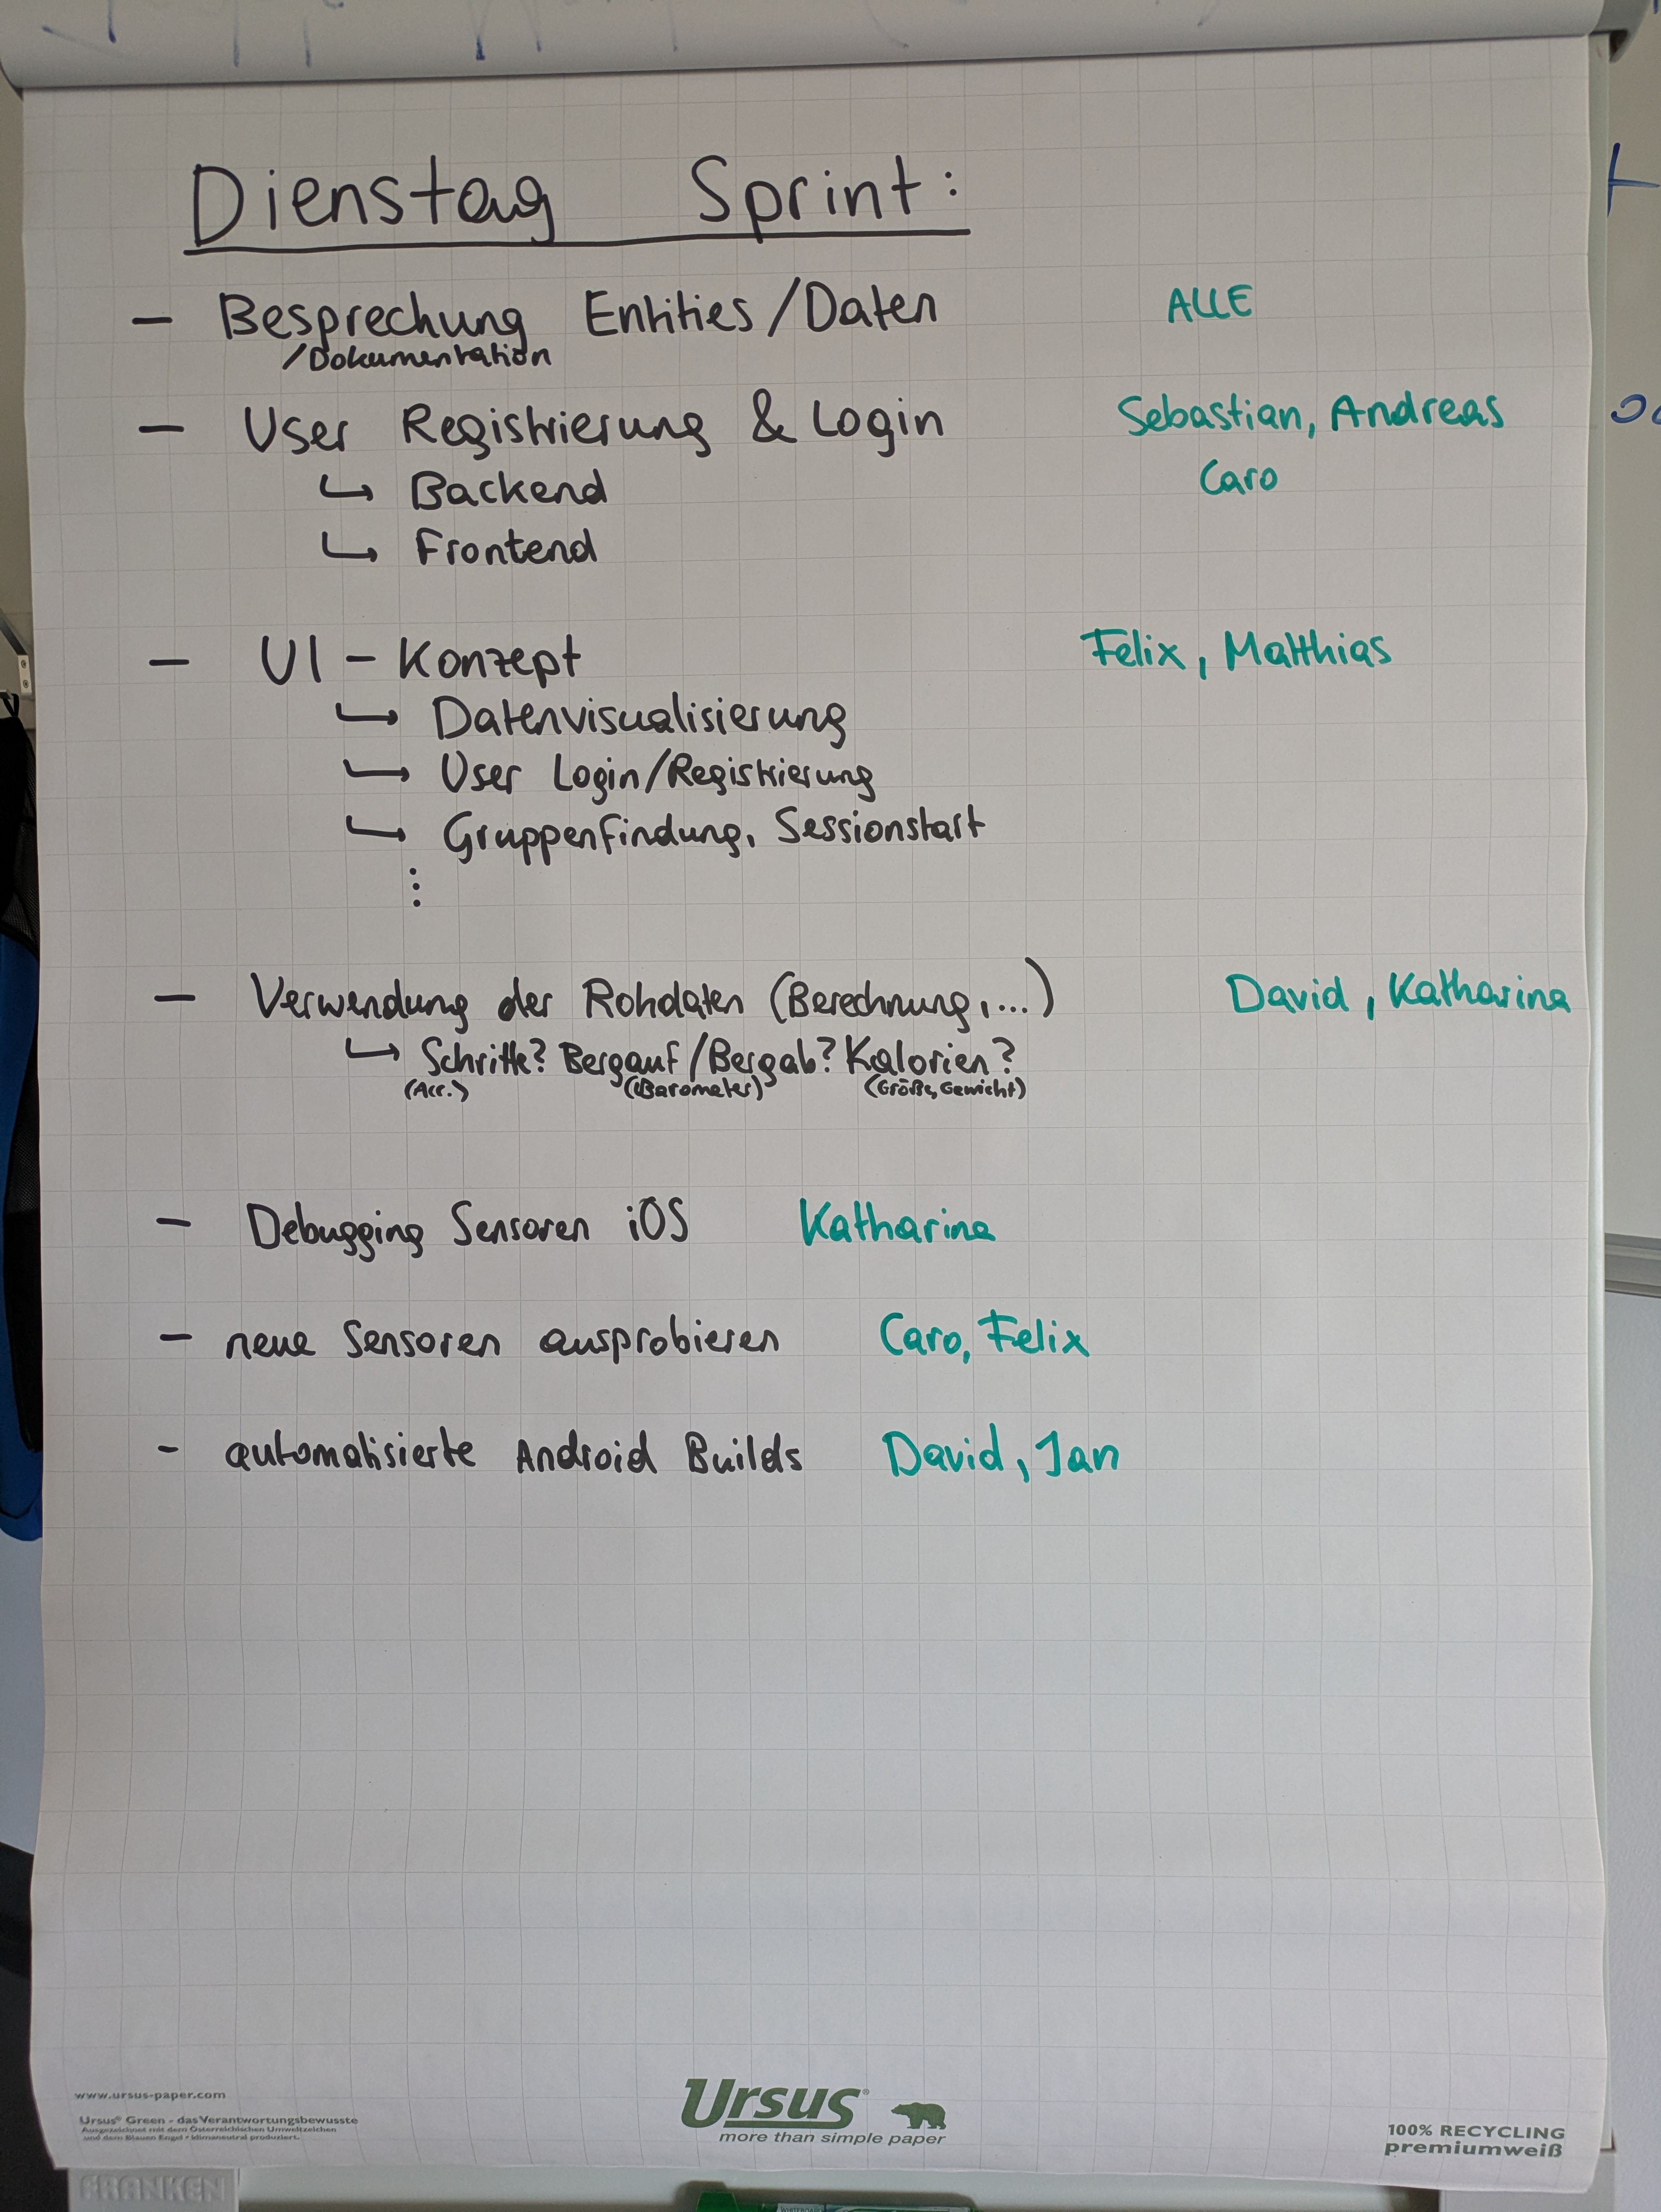 Dienstag Sprint:
– Besprechung Entities/Daten ALLE
/Dokumentation
– User Registrierung & Login Sebastian, Andreas
↳ Backend Caro
↳ Frontend
– UI – Konzept Felix, Matthias
↳ Datenvisualisierung
↳ User Login/Registrierung
↳ Gruppenfindung, Sessionstart
⋮
– Verwendung der Rohdaten (Berechnung,...) David, Katharina
↳ Schritte? Bergauf/Bergab? Kalorien?
(Acc.) (Barometer) (Größe, Gewicht)
– Debugging Sensoren iOS Katharina
– neue Sensoren ausprobieren Caro, Felix
- automatisierte Android Builds David, Jan
www.ursus-paper.com
Ursus® Green - das Verantwortungsbewusste
Ausgezeichnet mit dem Österreichischen Umweltzeichen
und dem Blauen Engel • klimaneutral produziert.
Ursus®
more than simple paper
100% RECYCLING
premiumweiß
FRANKEN